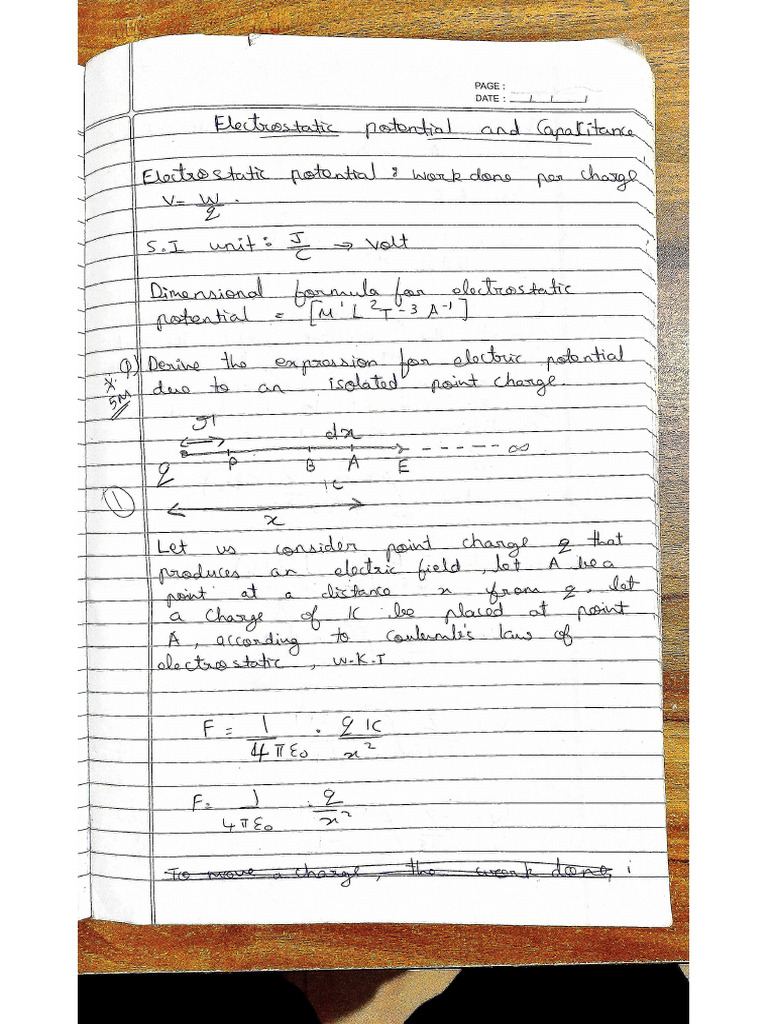 PAGE :
DATE : __/__/__/
Electrostatic potential and Capacitance
Electrostatic potential : work done per charge
V = W/q .
S.I unit : J/C → Volt
Dimensional formula for electrostatic
potential = [M¹ L² T⁻³ A⁻¹]
Q) Derive the expression for electric potential
* 5M due to an isolated point charge.
r dx
q P B A E ------ ∞
1C
①
x
Let us consider point charge q that
produces an electric field, let A be a
point at a distance x from q. let
a charge of 1C be placed at point
A, according to Coulomb's law of
electrostatic, W.K.T
F = 1/4πε₀ . q 1C/x²
F = 1/4πε₀ . q/x²
To move a charge, the work done, i